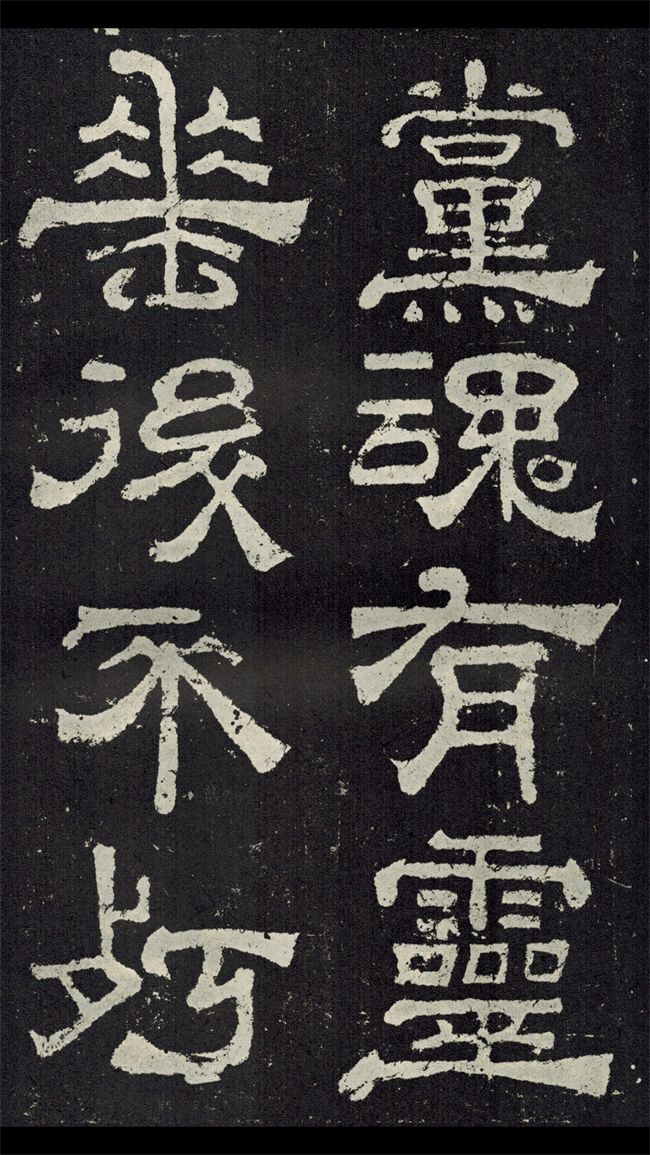 黨魂有靈
垂後不朽